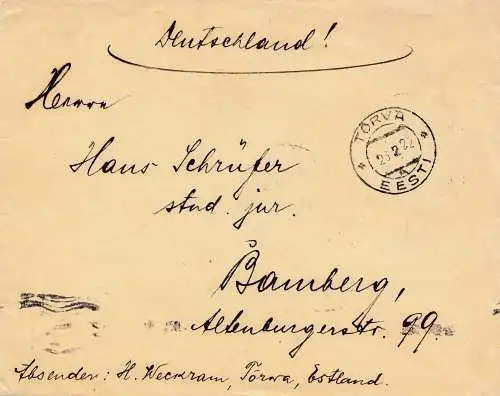 Deutschland!
Herrn
TÕRVA
23.2.22
A
EESTI
Hans Schrüfer
stud. jur.
Bamberg,
Altenburgerstr. 99.
Absender: H. Weckram, Törwa, Estland.